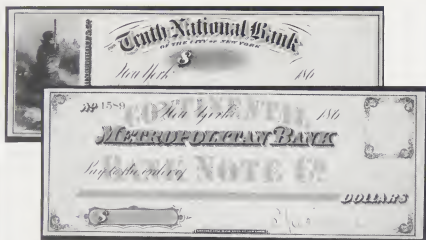 Truth National Bank
OF THE CITY OF NEW YORK
$
New York 186
No 1580
New York 186
CONTINENTAL
METROPOLITAN BANK
BANK NOTE Co
Pay to the order of
DOLLARS